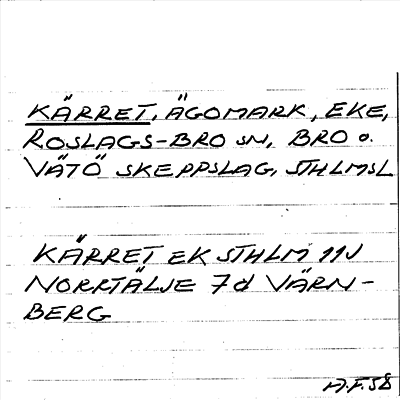 KÄRRET, ÄGOMARK, EKE,
ROSLAGS-BRO SN, BRO o.
VÄTÖ SKEPPSLAG, STHLMSL
KÄRRET EK STHLM 11J
NORRTÄLJE 7d VÄRN-
BERG
A.F.58